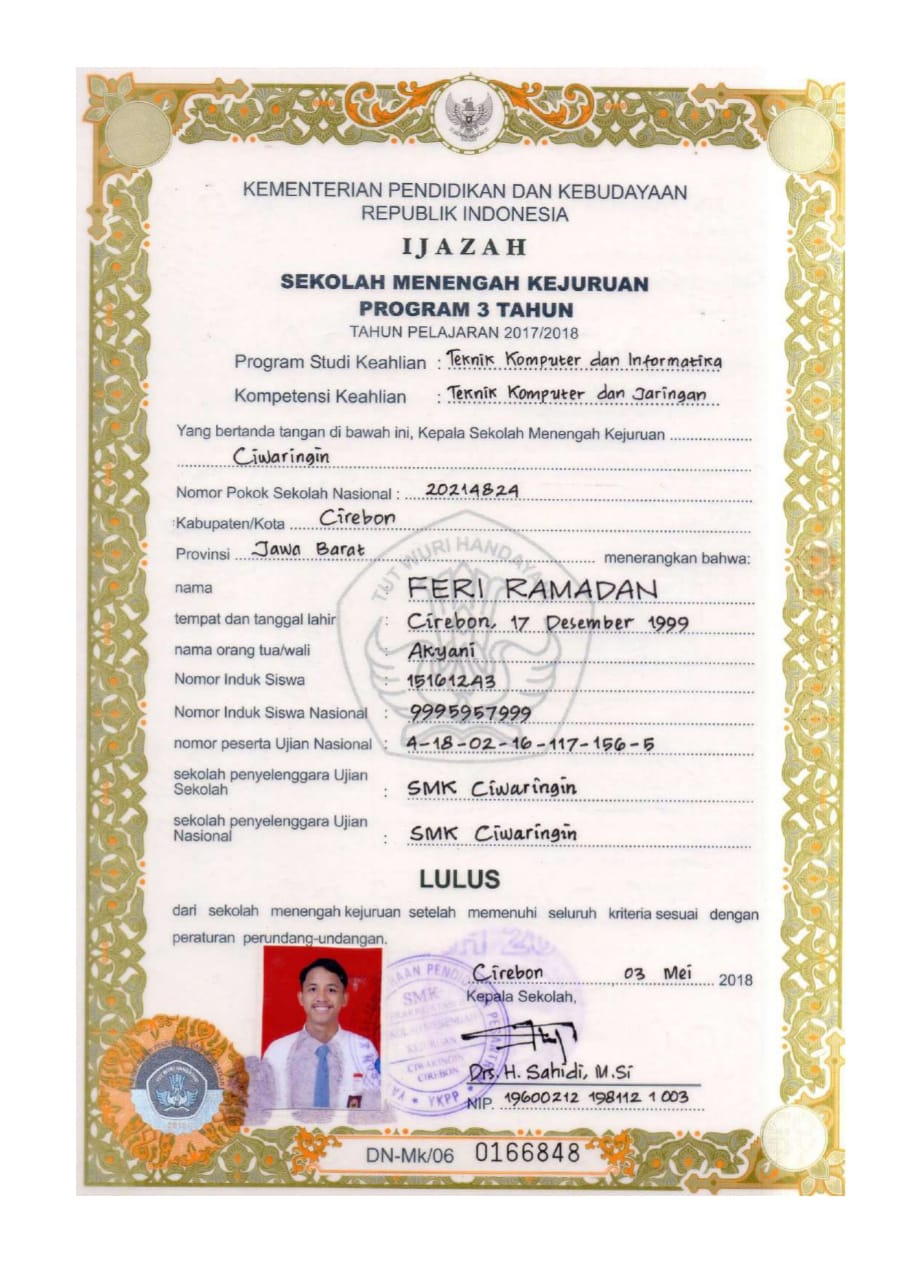 KEMENTERIAN PENDIDIKAN DAN KEBUDAYAAN
REPUBLIK INDONESIA
IJAZAH
SEKOLAH MENENGAH KEJURUAN
PROGRAM 3 TAHUN
TAHUN PELAJARAN 2017/2018
Program Studi Keahlian : Teknik Komputer dan Informatika
Kompetensi Keahlian : Teknik Komputer dan Jaringan
Yang bertanda tangan di bawah ini, Kepala Sekolah Menengah Kejuruan
Ciwaringin
Nomor Pokok Sekolah Nasional : 20214824
Kabupaten/Kota Cirebon
Provinsi Jawa Barat menerangkan bahwa:
TUT WURI HANDAYA
nama FERI RAMADAN
tempat dan tanggal lahir : Cirebon, 17 Desember 1999
nama orang tua/wali : Akyani
Nomor Induk Siswa : 151612A3
Nomor Induk Siswa Nasional : 9995957999
nomor peserta Ujian Nasional : 4-18-02-16-117-156-5
sekolah penyelenggara Ujian
Sekolah : SMK Ciwaringin
sekolah penyelenggara Ujian
Nasional : SMK Ciwaringin
LULUS
dari sekolah menengah kejuruan setelah memenuhi seluruh kriteria sesuai dengan
peraturan perundang-undangan.
Cirebon, 03 Mei 2018
Kepala Sekolah,
SMK
KEJURUAN
CIWARINGIN
CIREBON
YKPP
Drs. H. Sahidi, M.Si
NIP. 19600212 198112 1 003
DN-Mk/06 0166848